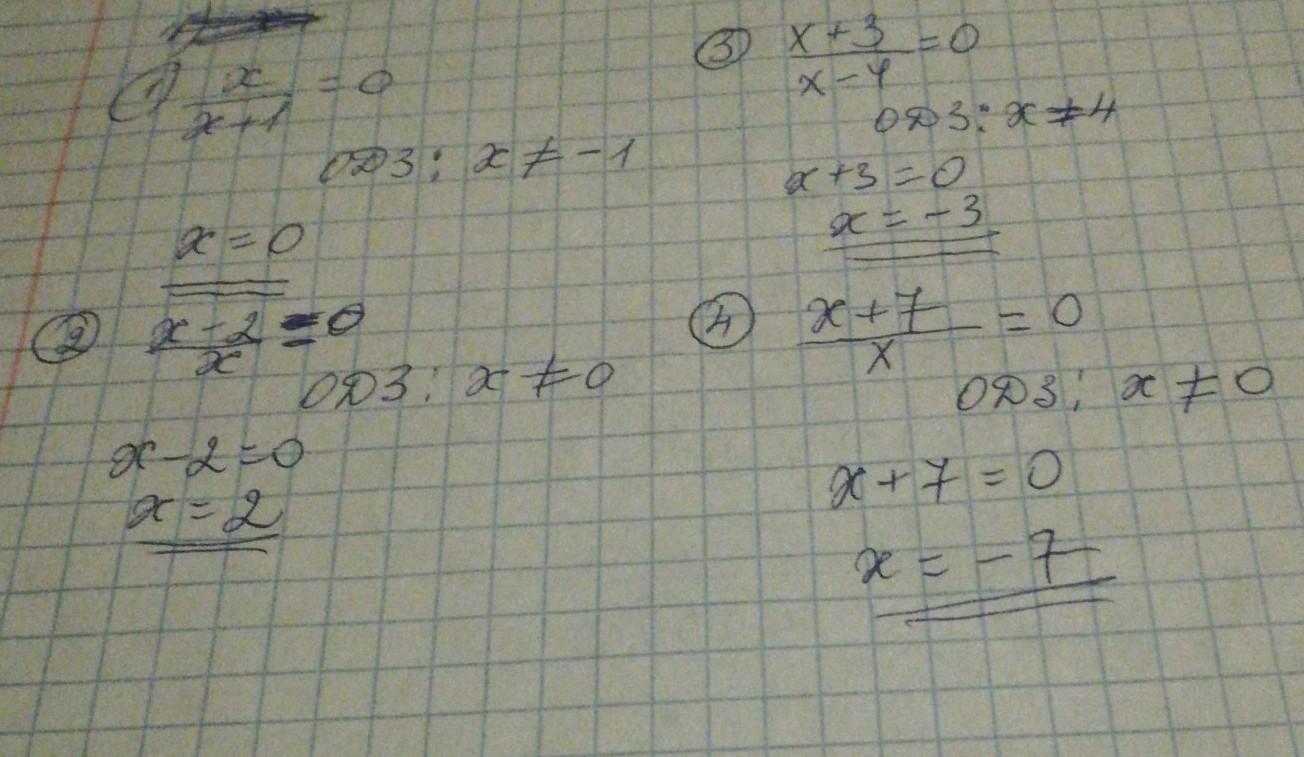 ① x/(x+1) = 0
ОДЗ: x ≠ -1
x = 0
② (x-2)/x = 0
ОДЗ: x ≠ 0
x-2=0
x = 2
③ (x+3)/(x-4) = 0
ОДЗ: x ≠ 4
x+3=0
x = -3
④ (x+7)/x = 0
ОДЗ: x ≠ 0
x+7=0
x = -7